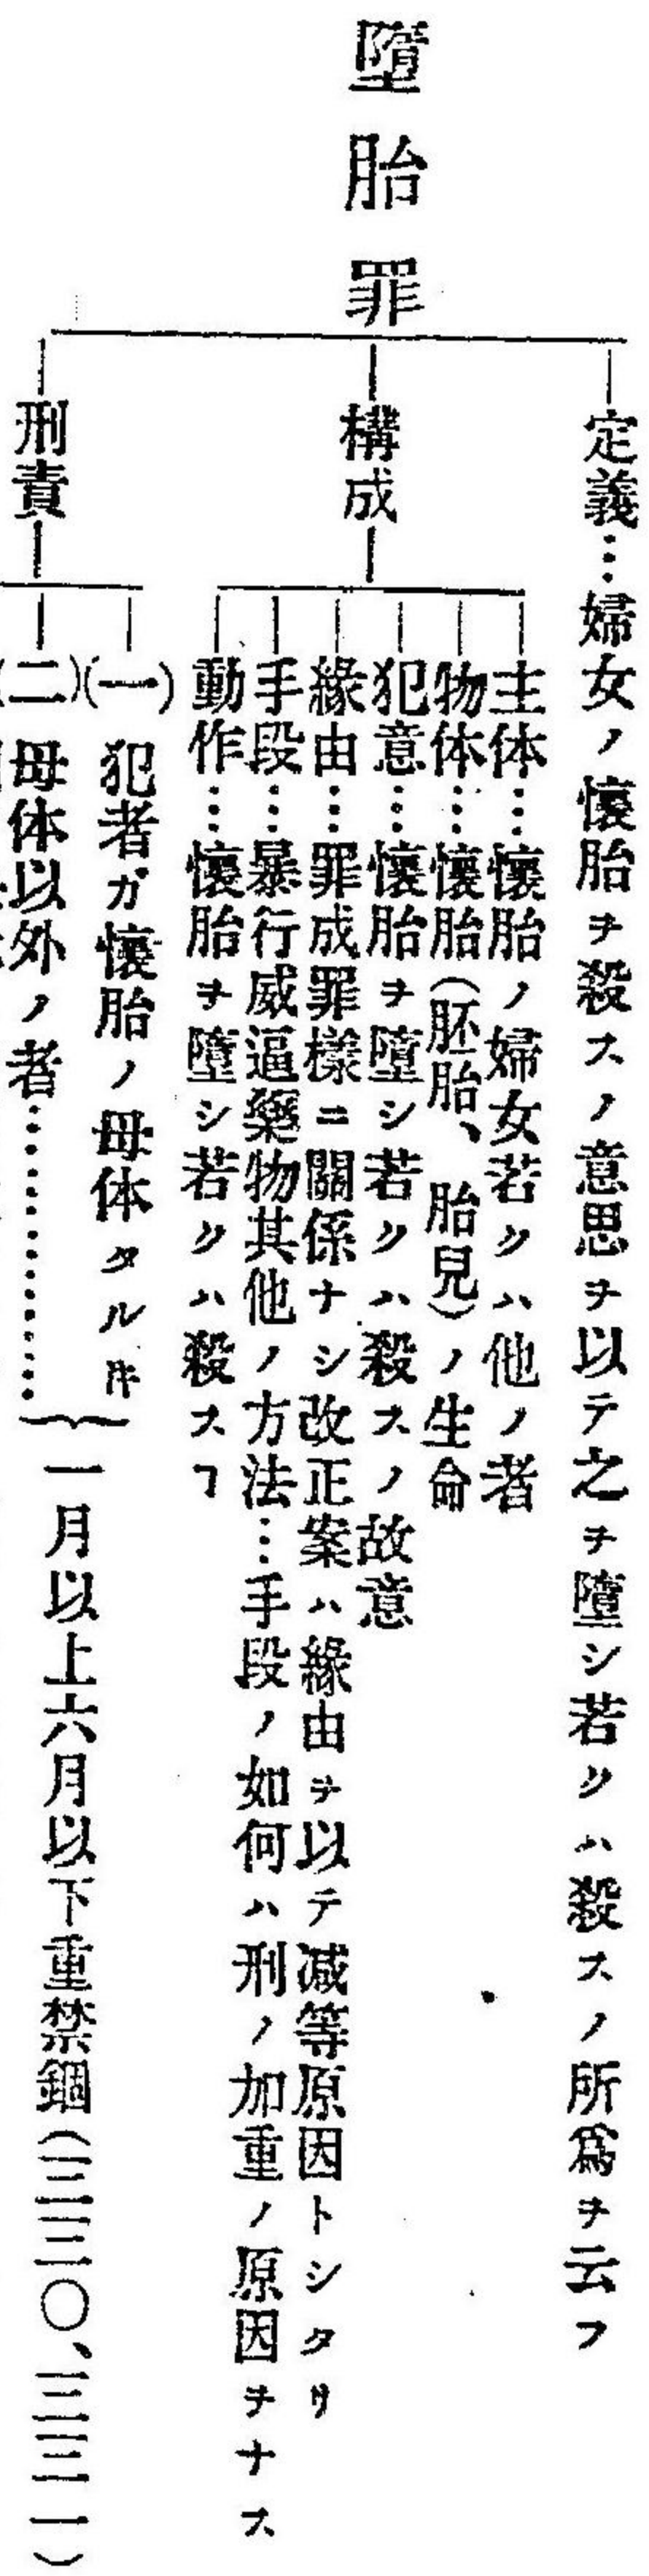 墮胎罪
定義…婦女ノ懷胎ヲ殺スノ意思ヲ以テ之ヲ墮シ若クハ殺スノ所爲ヲ云フ
構成
主体…懷胎ノ婦女若クハ他ノ者
物体…懷胎(胚胎、胎兒)ノ生命
犯意…懷胎ヲ墮シ若クハ殺スノ故意
緣由…罪成罪樣ニ關係ナシ改正案ハ緣由ヲ以テ减等原因トシタリ
手段…暴行威逼藥物其他ノ方法…手段ノ如何ハ刑ノ加重ノ原因ヲナス
動作…懷胎ヲ墮シ若クハ殺スヿ
刑責
(一) 犯者ガ懷胎ノ母体タルㇳキ
(二) 母体以外ノ者…………
一月以上六月以下重禁錮(三三〇、三三一)